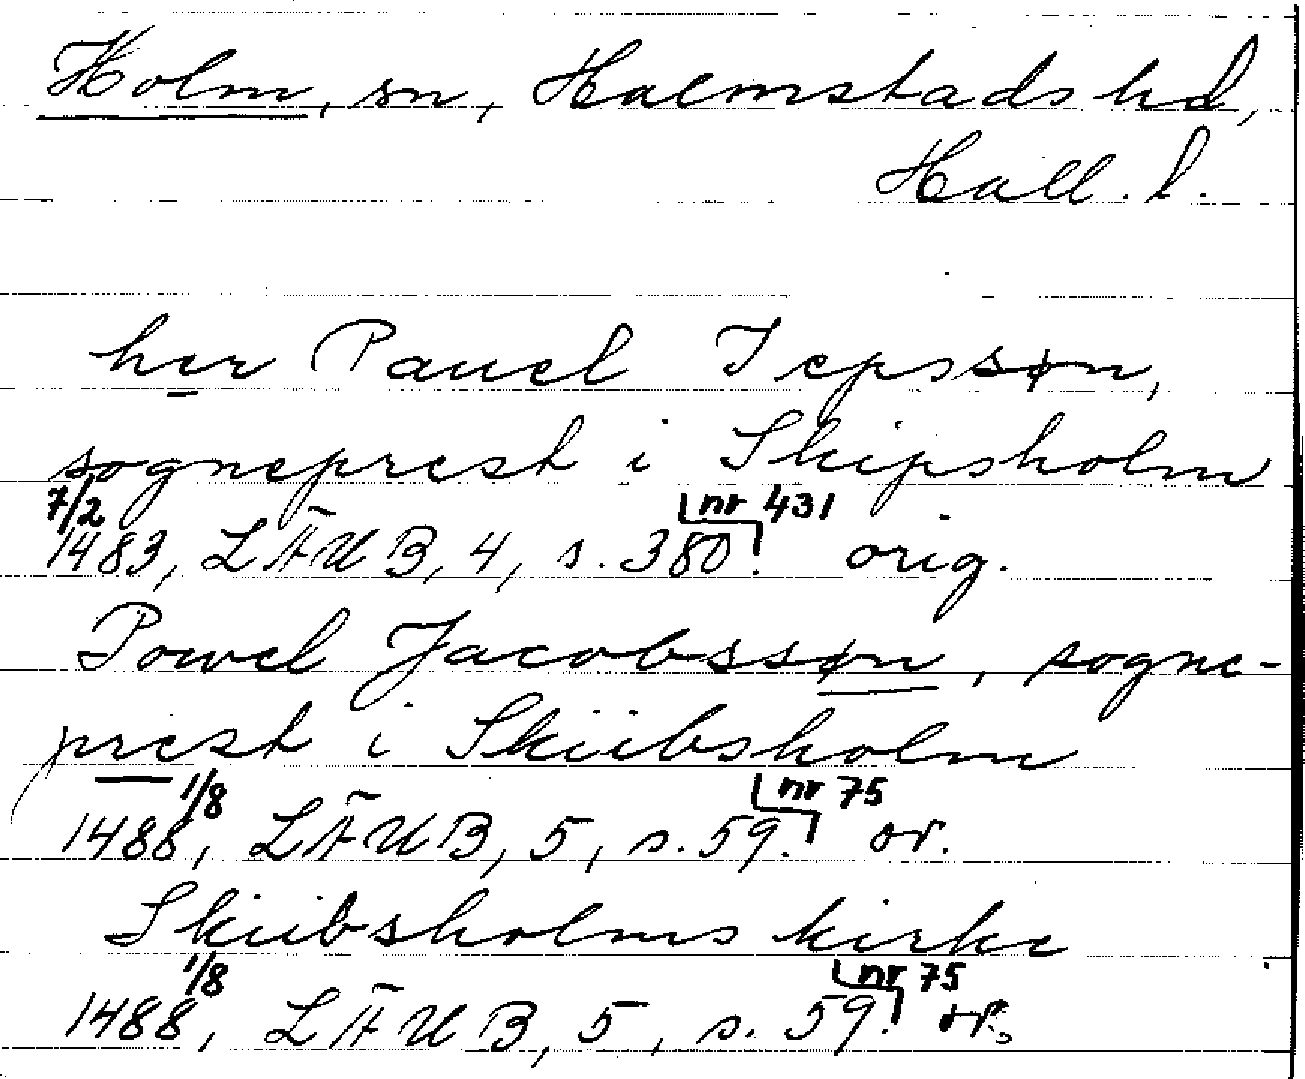 Holm, sn, Halmstads hd,
Hall. l.
her Pauel Jepssøn,
sogneprest i Skipsholm
7/2 nr 431
1483, LÄUB, 4, s. 380. orig.
Powel Jacobssøn, sogne-
prest i Skiibsholm
1/8 nr 75
1488, LÄUB, 5, s. 59. or.
Skiibsholms kirke
1/8 nr 75
1488, LÄUB, 5, s. 59. or.